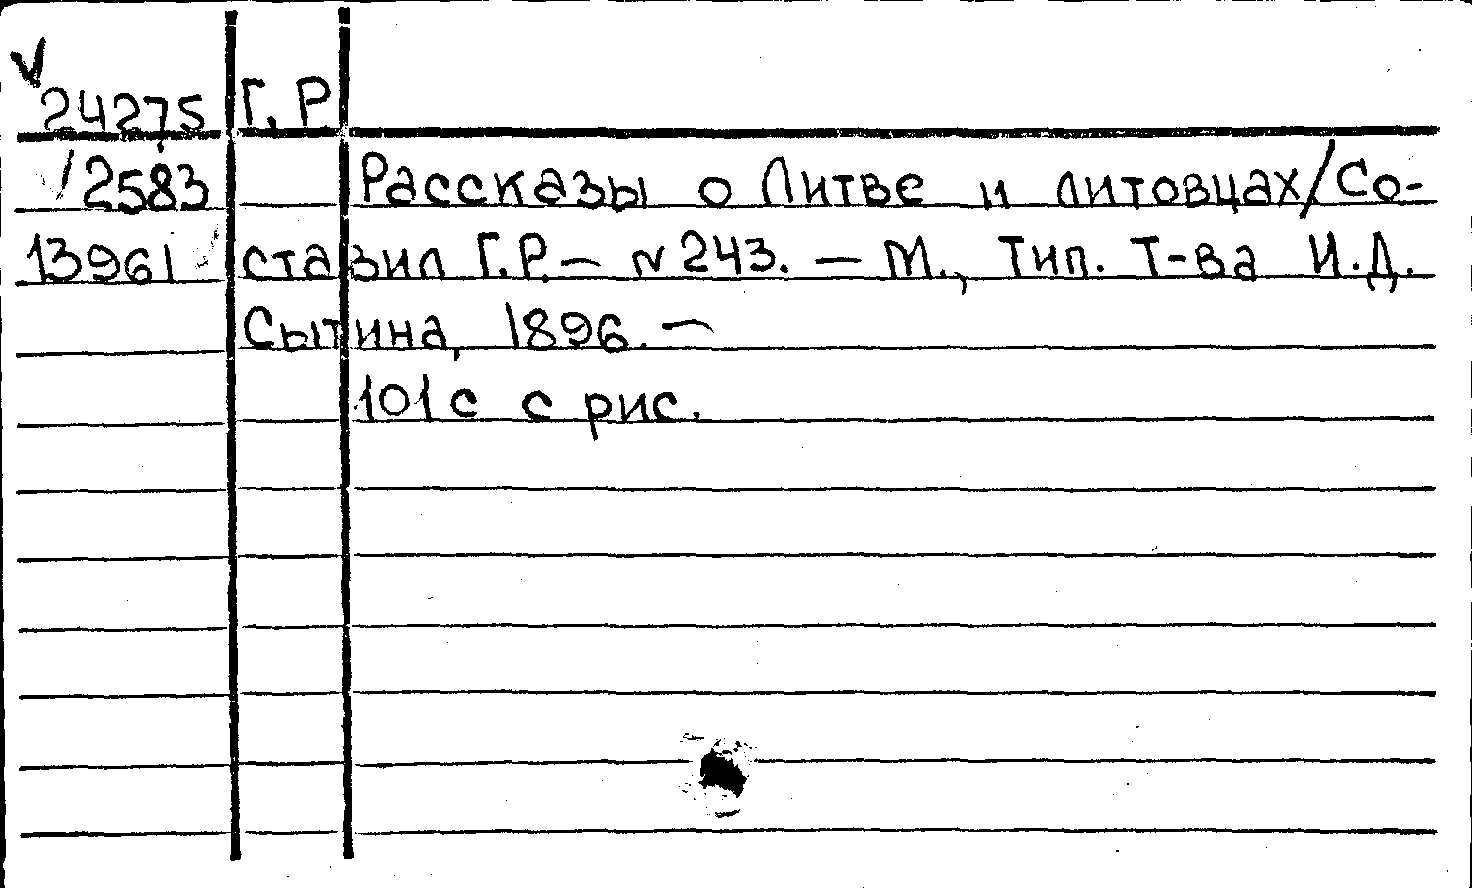 V
24275 Г. Р
12583 Рассказы о Литве и литовцах/Со-
13961 ставил Г.Р. – N 243. – М., Тип. Т-ва И.Д.
Сытина, 1896. –
101 с с рис.